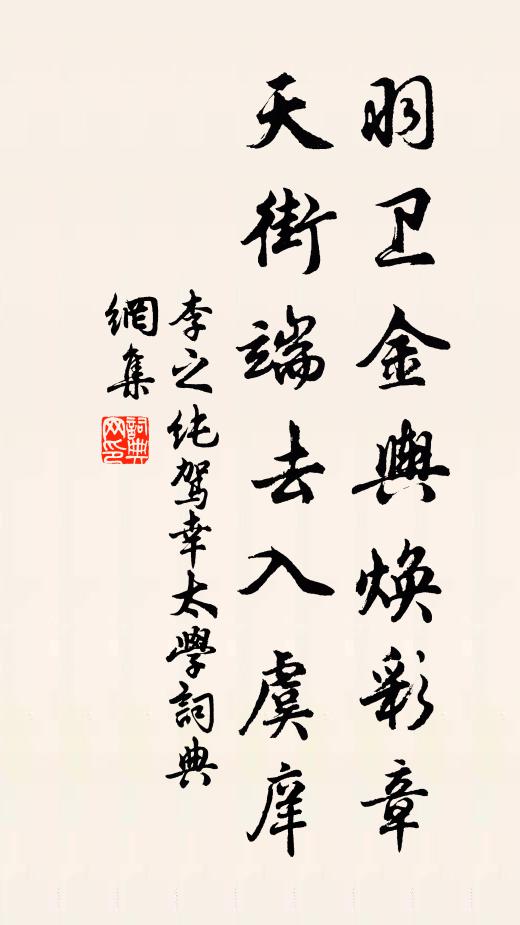 羽卫金舆焕彩章
天街端去入虞庠
李之纯驾幸太学词典
網集
詞典
网印